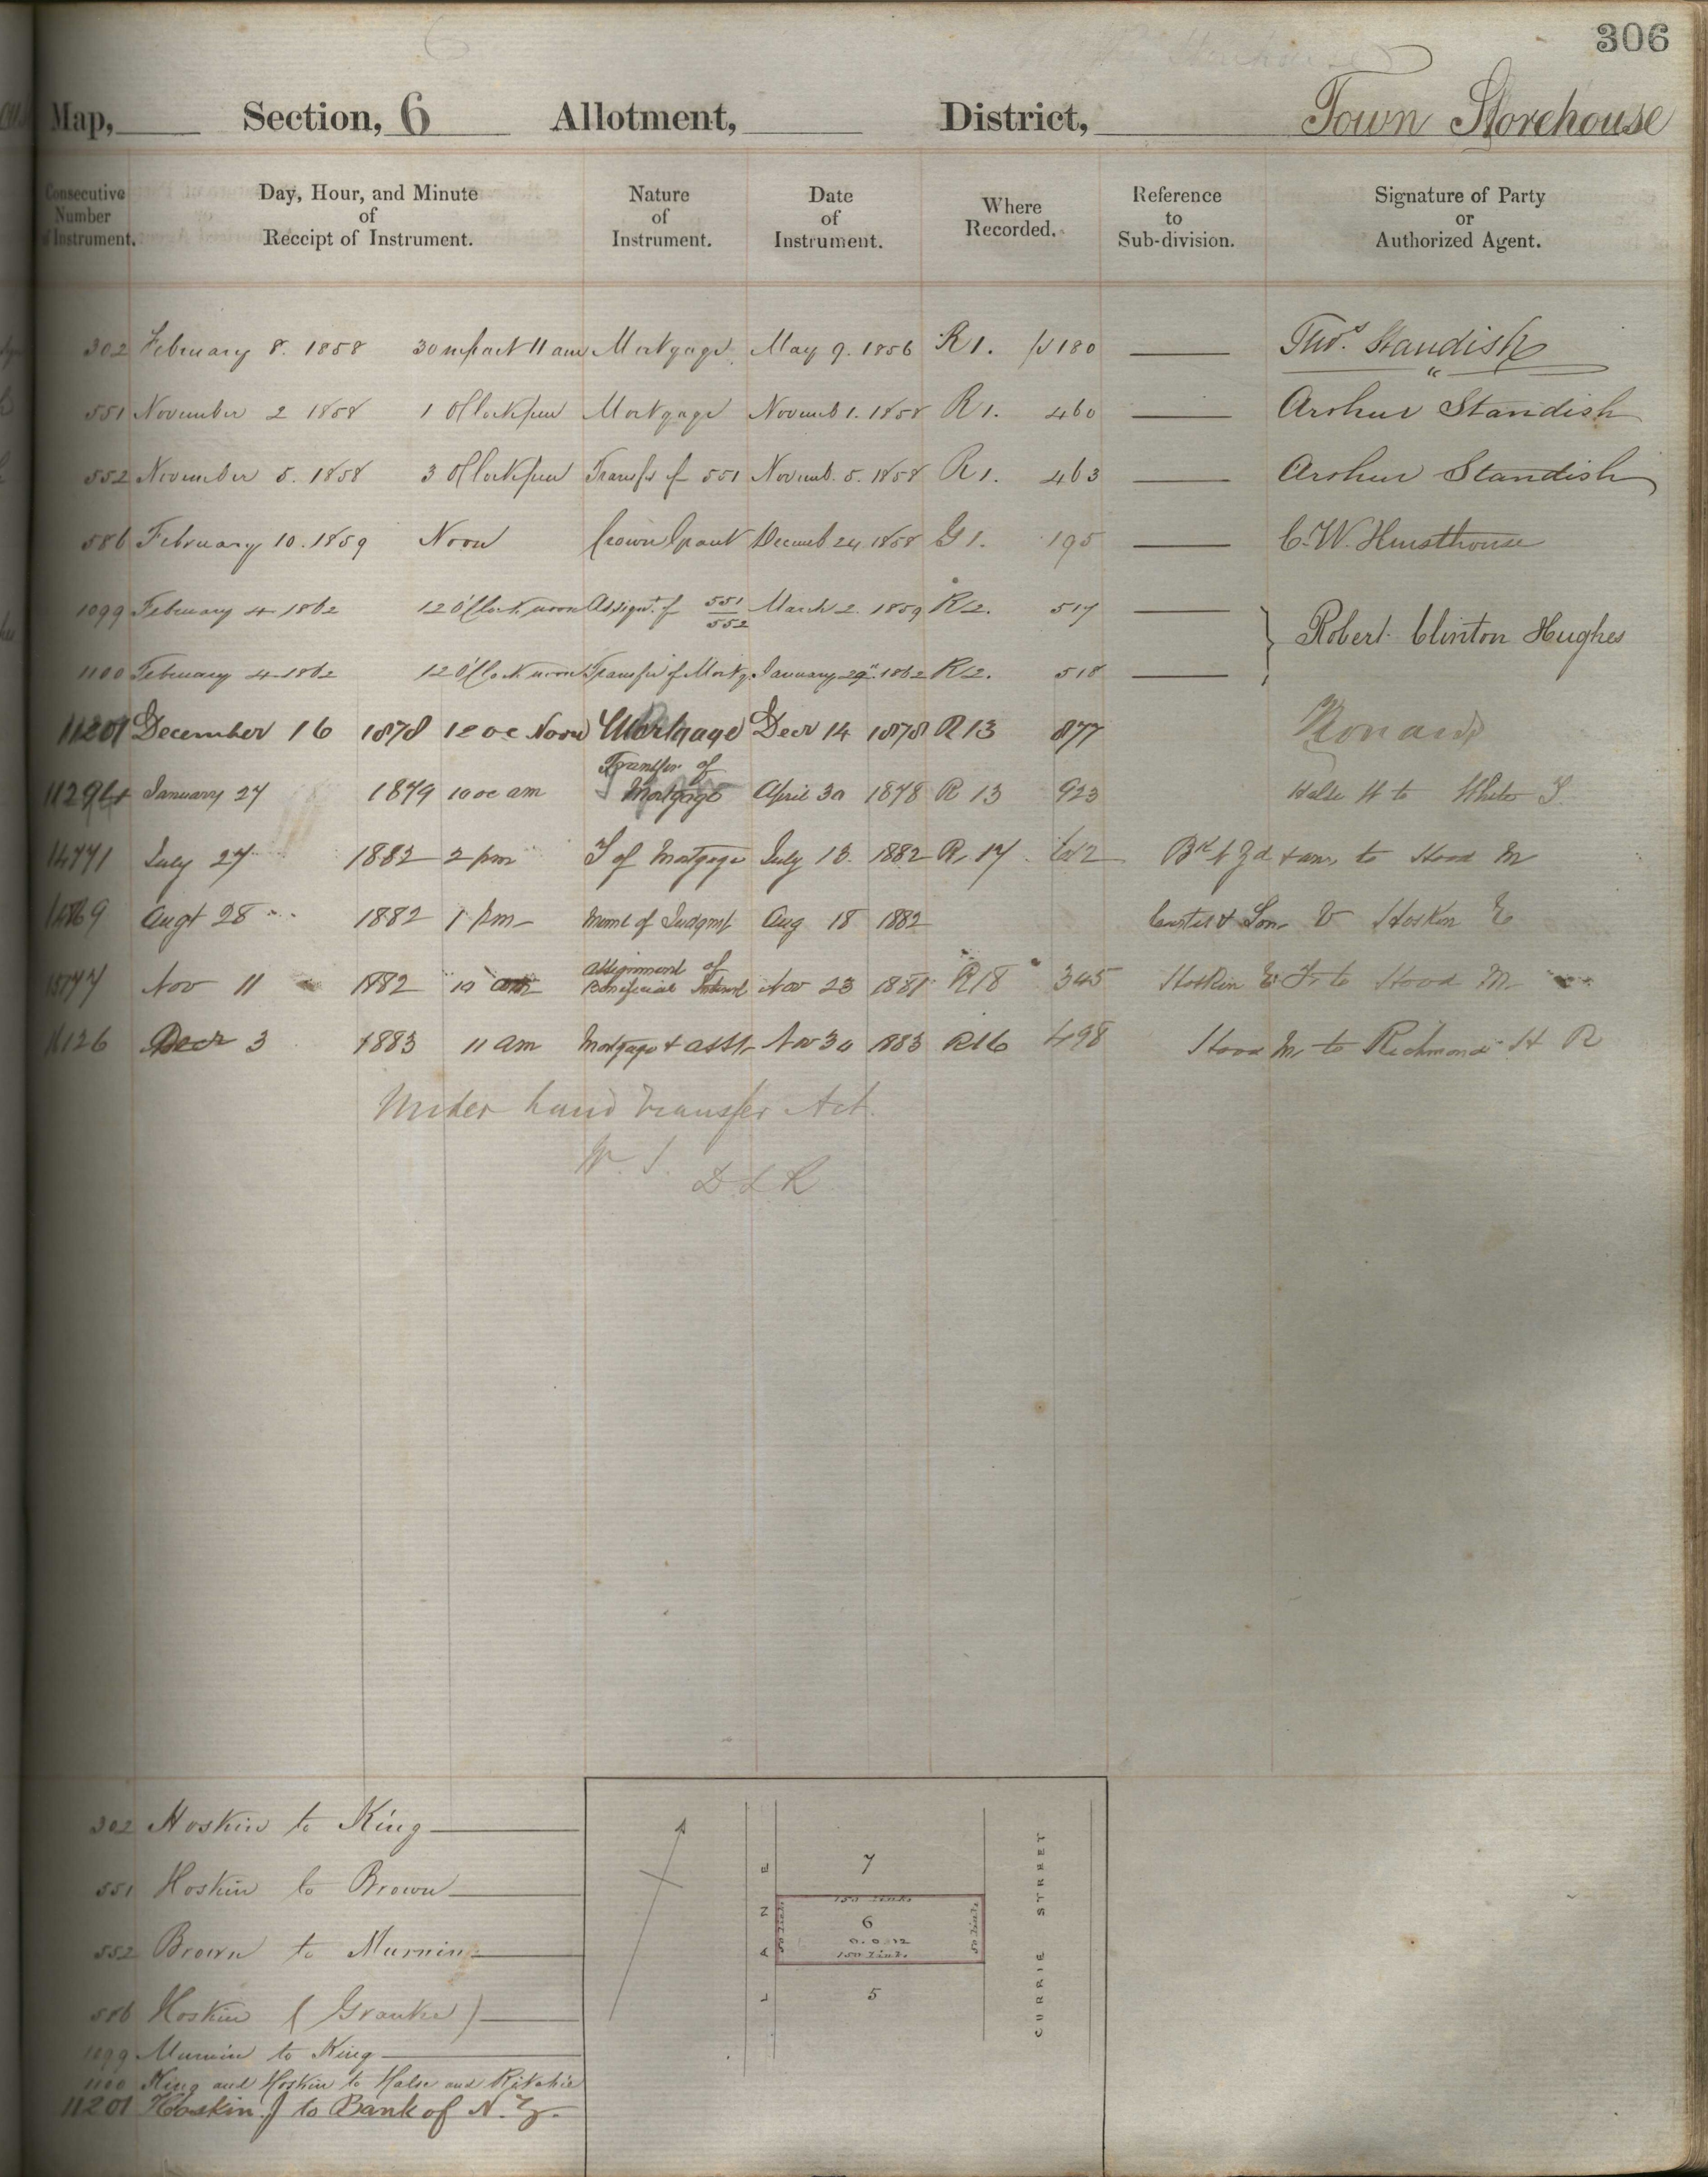 306
Map, Section, 6 Allotment, District, Town Storehouse
Consecutive Number of Instrument. Day, Hour, and Minute of Receipt of Instrument. Nature of Instrument. Date of Instrument. Where Recorded. Reference to Sub-division. Signature of Party or Authorized Agent.
302 February 8. 1858 30 m past 11 am Mortgage May 9. 1856 R1. 180 Thos. Standish
551 November 2 1858 1 OClock pm Mortgage Novemb 1. 1858 R1. 460 Arthur Standish
552 November 5. 1858 3 OClock pm Transfr of 551 Novemb. 5. 1858 R1. 463 Arthur Standish
586 February 10. 1859 Noon Crown Grant Decemb 24 1858 G1. 195 C. W. Hursthouse
1099 February 4 1862 12 O'Clock noon Assignt. of 551 552 March 2. 1859 R2. 517
Robert Clinton Hughes
1100 February 4 1862 12 O'Clock noon Transfer of Mortg. January 29" 1862 R2. 518
11201 December 16 1878 12 oc Noon Mortgage Decr 14 1878 R13 877
Transfer of
11294 January 27 1879 10 oc am Mortgage April 30 1878 R 13 923 Halse H to White J.
14771 July 27 1882 2 pm T of Mortgage July 13 1882 R. 17 Bk of Zd to Hood M
14869 Augt 28 1882 1 pm Meml of Judgmt Aug 18 1882 & Son V Hoskin E
Assignment of
Nov 11 1882 10 am Beneficial Interest Nov 23 1881 R18 345 Hoskin E to Hood M.
Decr 3 1883 11 am Mortgage & asst Nov 30 1883 R16 498 Hood M to Richmond H R
Under Land Transfer Act.
D L R
302 Hoskin to King
551 Hoskin to Brown
552 Brown to Murnin
586 Hoskin (Grantee)
1099 Murnin to King
1100 King and Hoskin to Halse and Ritchie
11201 Hoskin J to Bank of N. Z.
LANE
7
150 links
50 links
6
0. 0. 12
50 links
150 links
5
CURRIE STREET